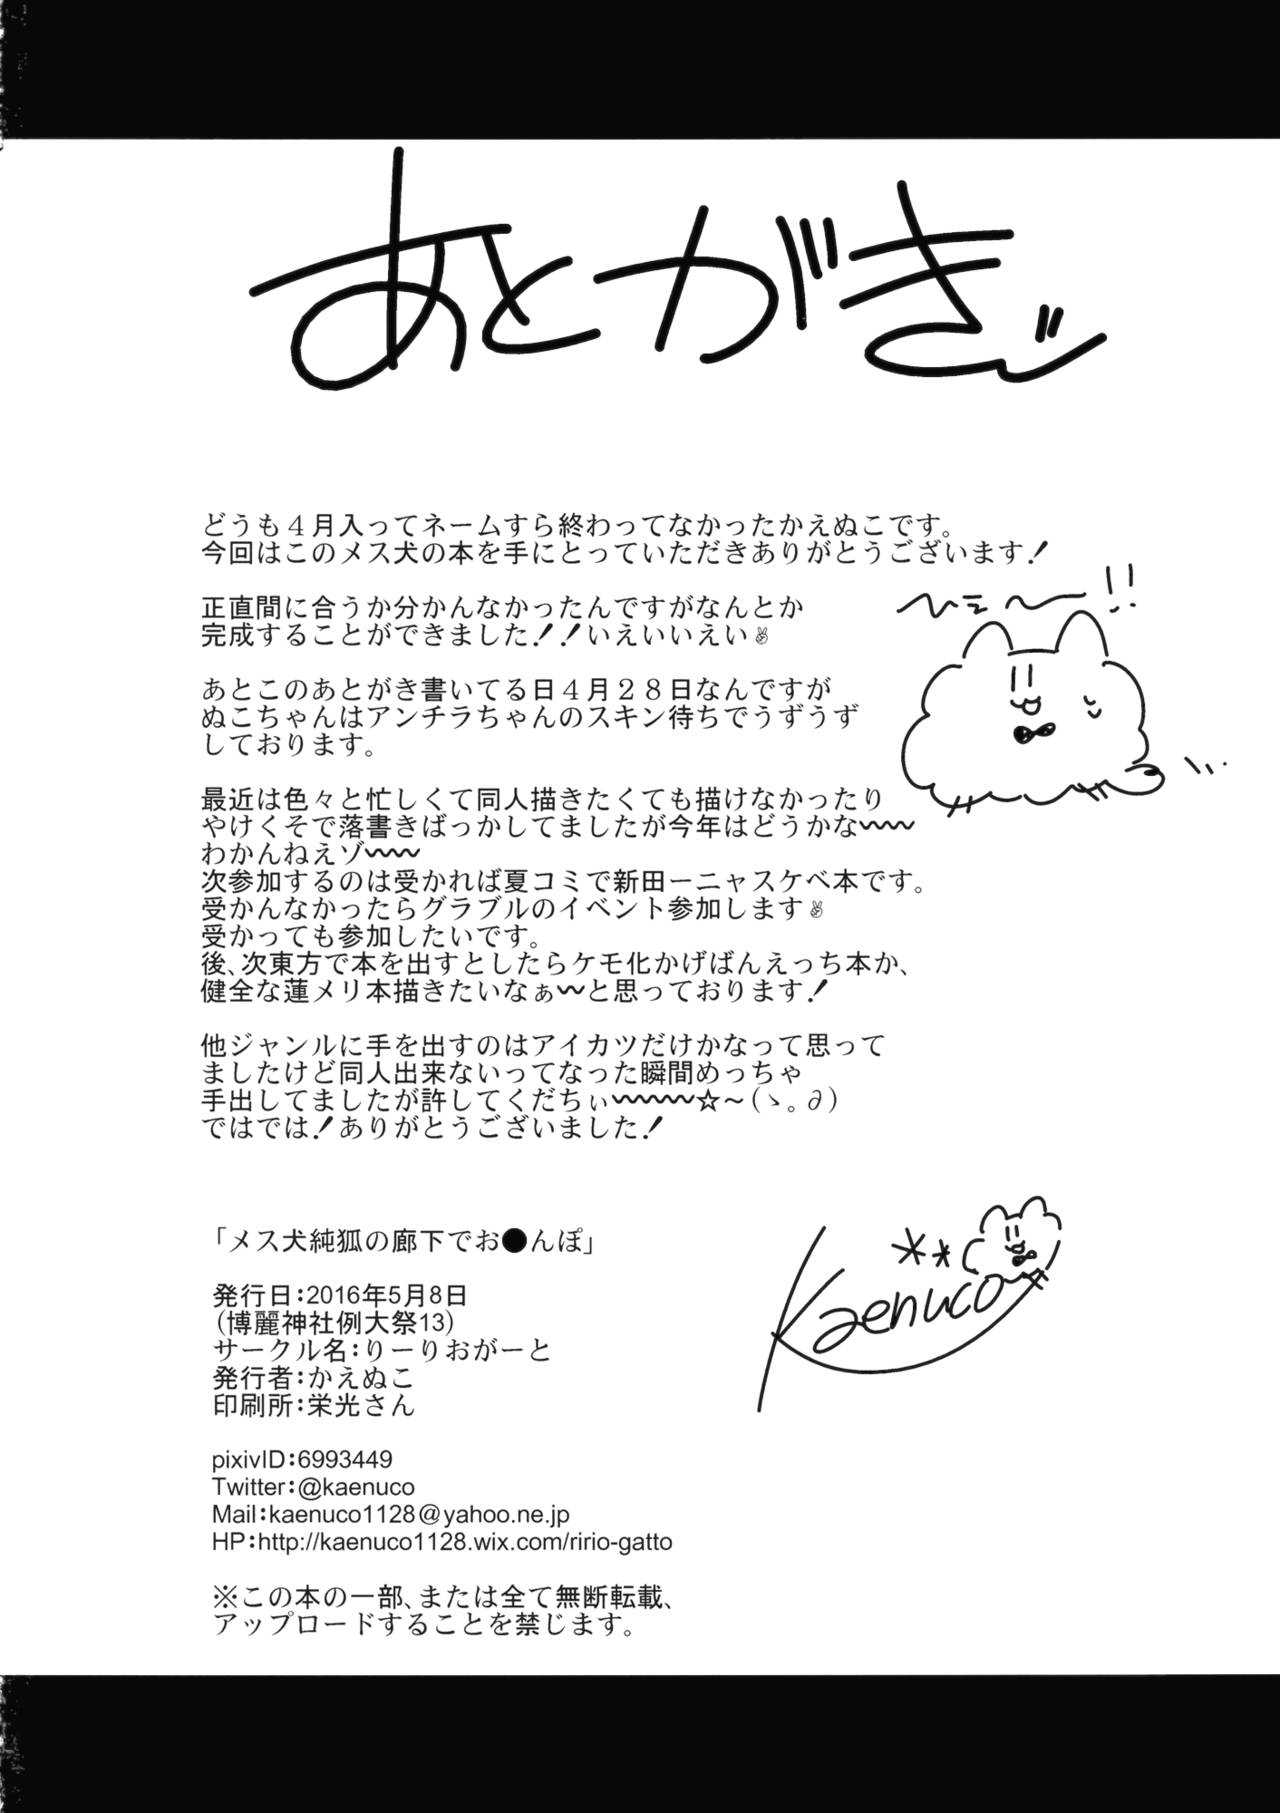 あとがきッ
どうも４月入ってネームすら終わってなかったかえぬこです。
今回はこのメス犬の本を手にとっていただきありがとうございます！
正直間に合うか分かんなかったんですがなんとか
完成することができました！！いえいいえい✌
あとこのあとがき書いてる日４月２８日なんですが
ぬこちゃんはアンチラちゃんのスキン待ちでうずうず
しております。
最近は色々と忙しくて同人描きたくても描けなかったり
やけくそで落書きばっかしてましたが今年はどうかな〰〰
わかんねえゾ〰〰
次参加するのは受かれば夏コミで新田ーニャスケベ本です。
受かんなかったらグラブルのイベント参加します✌
受かっても参加したいです。
後、次東方で本を出すとしたらケモ化かげばんえっち本か、
健全な蓮メリ本描きたいなぁ〰と思っております！
他ジャンルに手を出すのはアイカツだけかなって思って
ましたけど同人出来ないってなった瞬間めっちゃ
手出してましたが許してくだちぃ〰〰〰☆～（ゝ。∂）
ではでは！ありがとうございました！
ひえ〜!!
「メス犬純狐の廊下でお●んぽ」
発行日：2016年5月8日
（博麗神社例大祭13）
サークル名：りーりおがーと
発行者：かえぬこ
印刷所：栄光さん
Kaenuco
pixivID：6993449
Twitter：@kaenuco
Mail：kaenuco1128@yahoo.ne.jp
HP：http://kaenuco1128.wix.com/ririo-gatto
※この本の一部、または全て無断転載、
アップロードすることを禁じます。